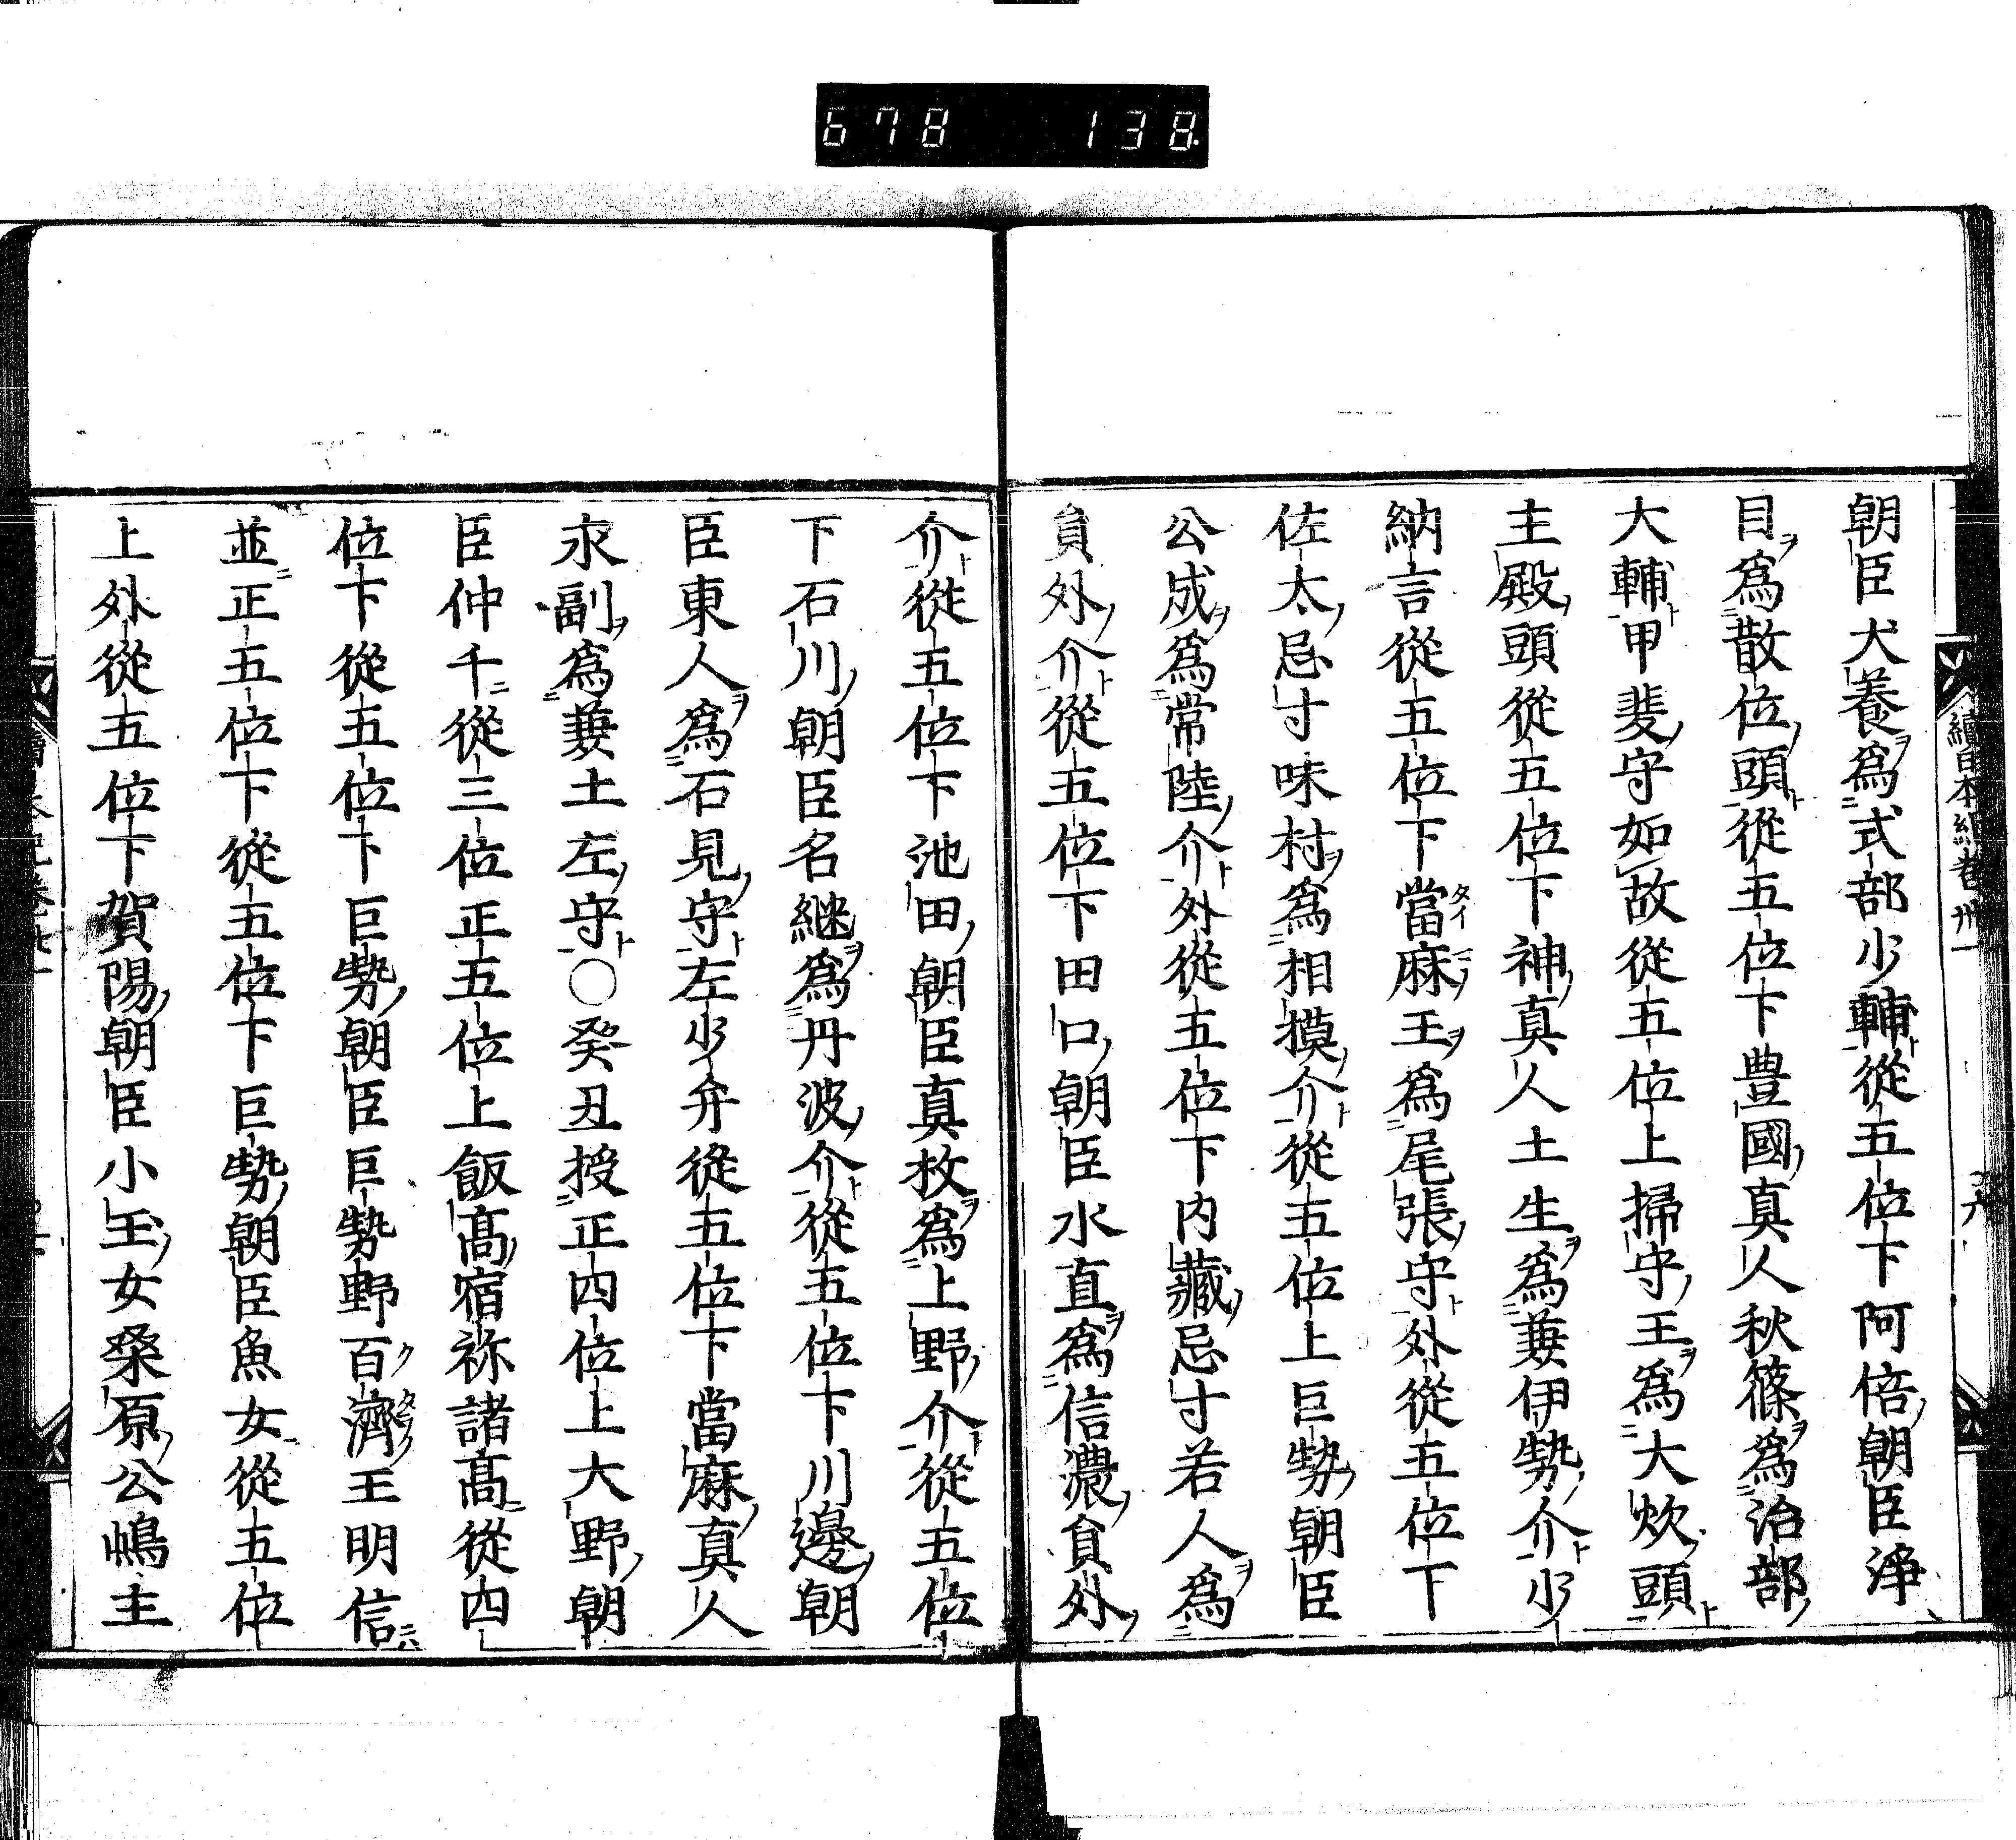 678 138
續日本紀卷卅一
朝臣犬養爲式部少輔從五位下阿倍朝臣淨
目爲散位頭從五位下豊國真人秋篠爲治部
大輔甲斐守如故從五位上掃守王爲大炊頭
主殿頭從五位下神真人土生爲兼伊勢介少
納言從五位下當麻王爲尾張守外從五位下
佐太忌寸味村爲相摸介從五位上巨勢朝臣
公成爲常陸介外從五位下内藏忌寸若人爲
員外介從五位下田口朝臣水直爲信濃員外
介從五位下池田朝臣真枚爲上野介從五位
下石川朝臣名継爲丹波介從五位下川邊朝
臣東人爲石見守左少弁從五位下當麻真人
永副爲兼土左守○癸丑授正四位上大野朝
臣仲千從三位正五位上飯髙宿祢諸髙從四
位下從五位下巨勢朝臣巨勢野百濟王明信
並正五位下從五位下巨勢朝臣魚女從五位
上外從五位下賀陽朝臣小玉女桒原公嶋主